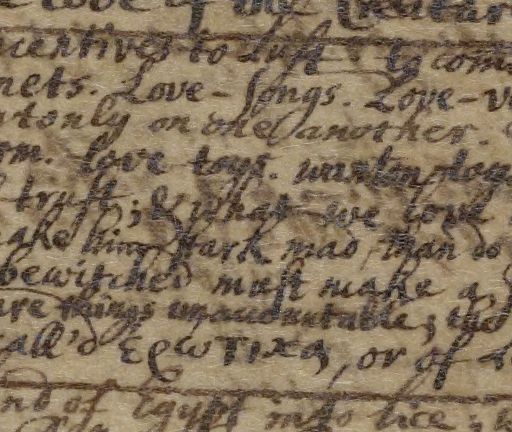 love of the Creatur
incentives to Lust: to com
nets. Love-songs. Love-v
tonly on one another.
om. love toys. wanton
trust; & what we love
ake him stark mad, than do
bewitched must make a
are things unaccountable; tho
call'd ἐρωτικα, or of
nd of Egypt into lice;